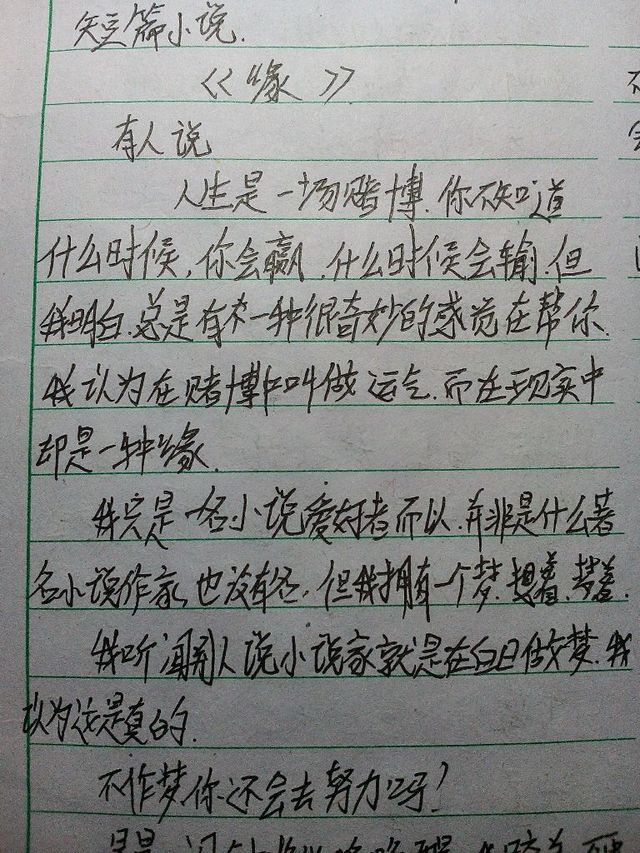 短篇小说.
《缘》
有人说
人生是一场赌博.你不知道
什么时候,你会赢,什么时候会输.但
我明白.总是有一种很奇妙的感觉在帮你.
我认为在赌博中叫做运气.而在现实中
却是一种缘.
我只是一名小说爱好者而以.并非是什么著
名小说作家,也没有名.但我拥有一个梦.想着.梦着.
我听闻别人说小说家就是在白日做梦.我
认为这是真的.
不作梦,你还会去努力吗?